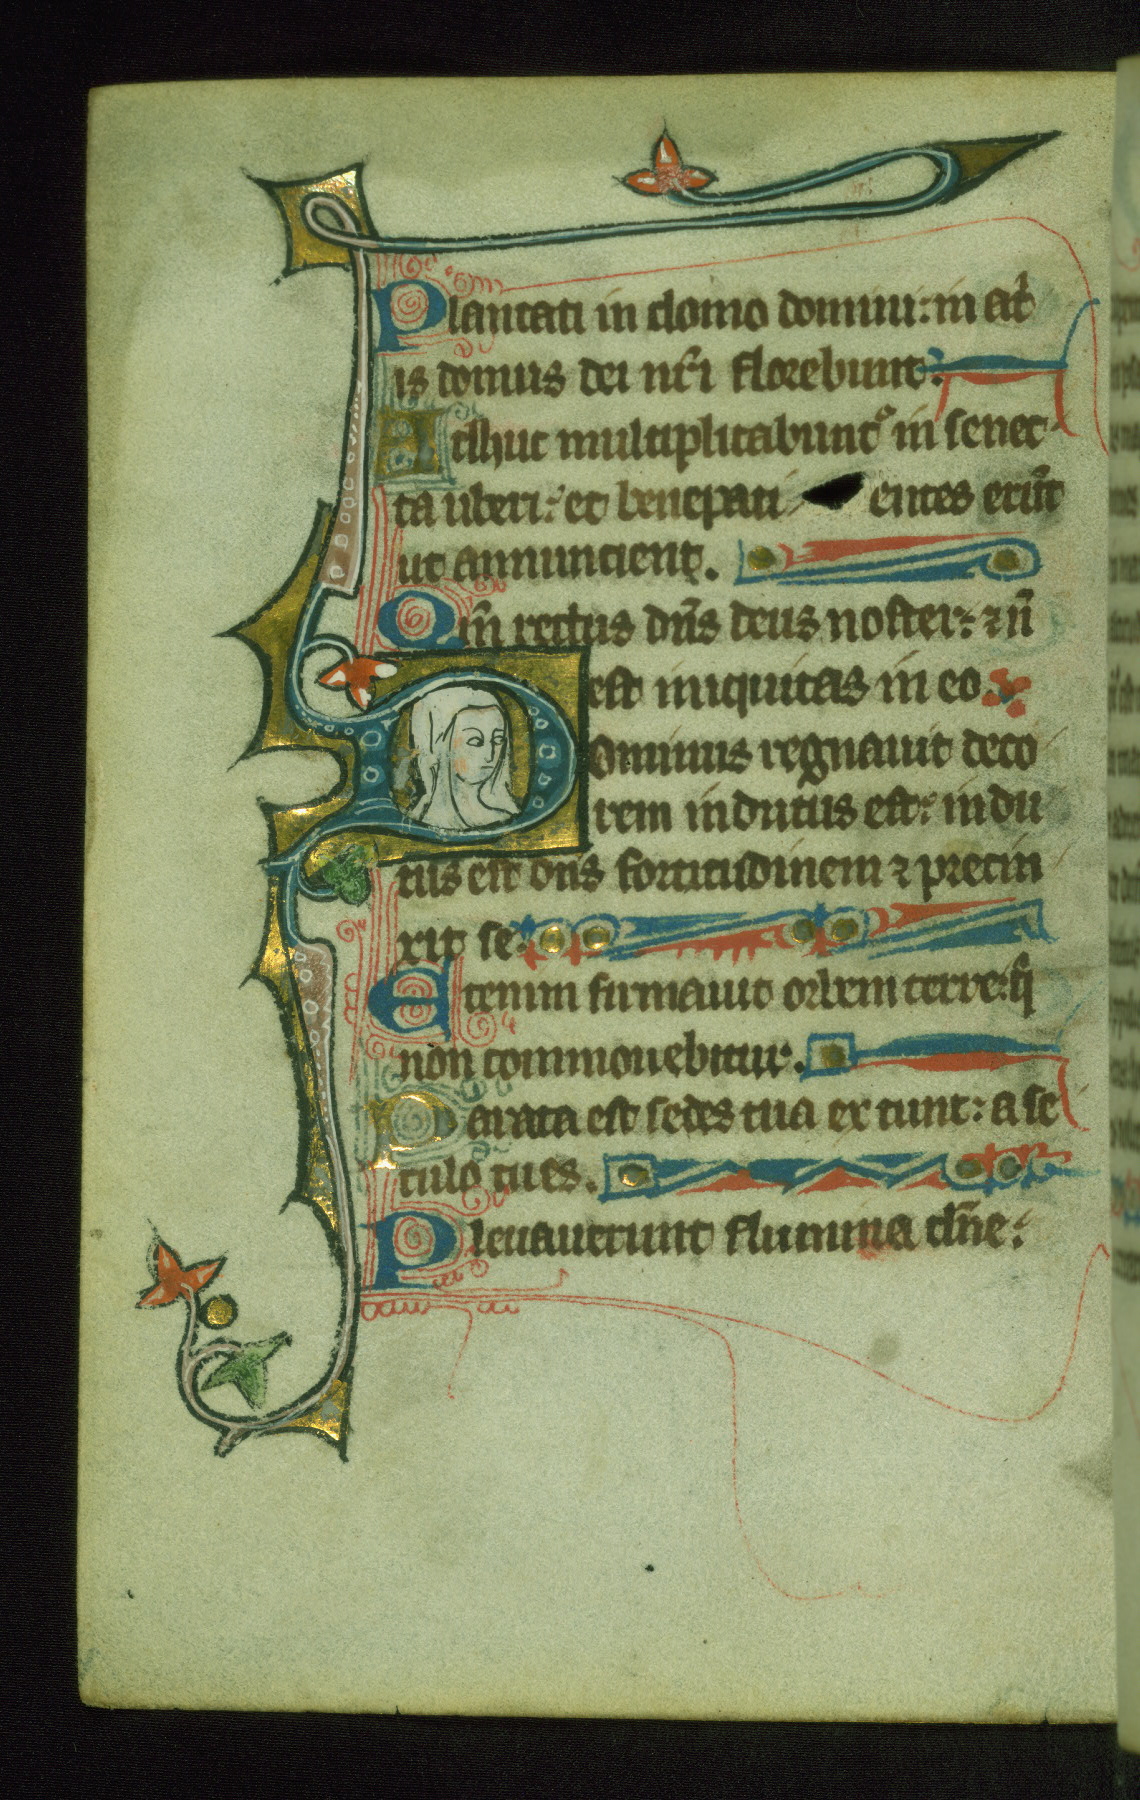 Plantati in domo domini: in atͥ
is domus dei nr̄i florebunt:
Adhuc multiplicabuntᷣ in senec-
ta uberi: et benepati entes erūt
ut annuncient.
Qm̄ rectus dn̄s deus noster: ⁊ n̄
est iniquitas in eo.
Dominus regnauit deco
rem indutus est: indu
tus est dn̄s fortitudinem ⁊ precin
xit se:
Etenim firmauit orbem terre: q̄
non commouebitur.
Parata est sedes tua ex tunc: a se
culo tu es.
Eleuauerunt flumina dn̄e: